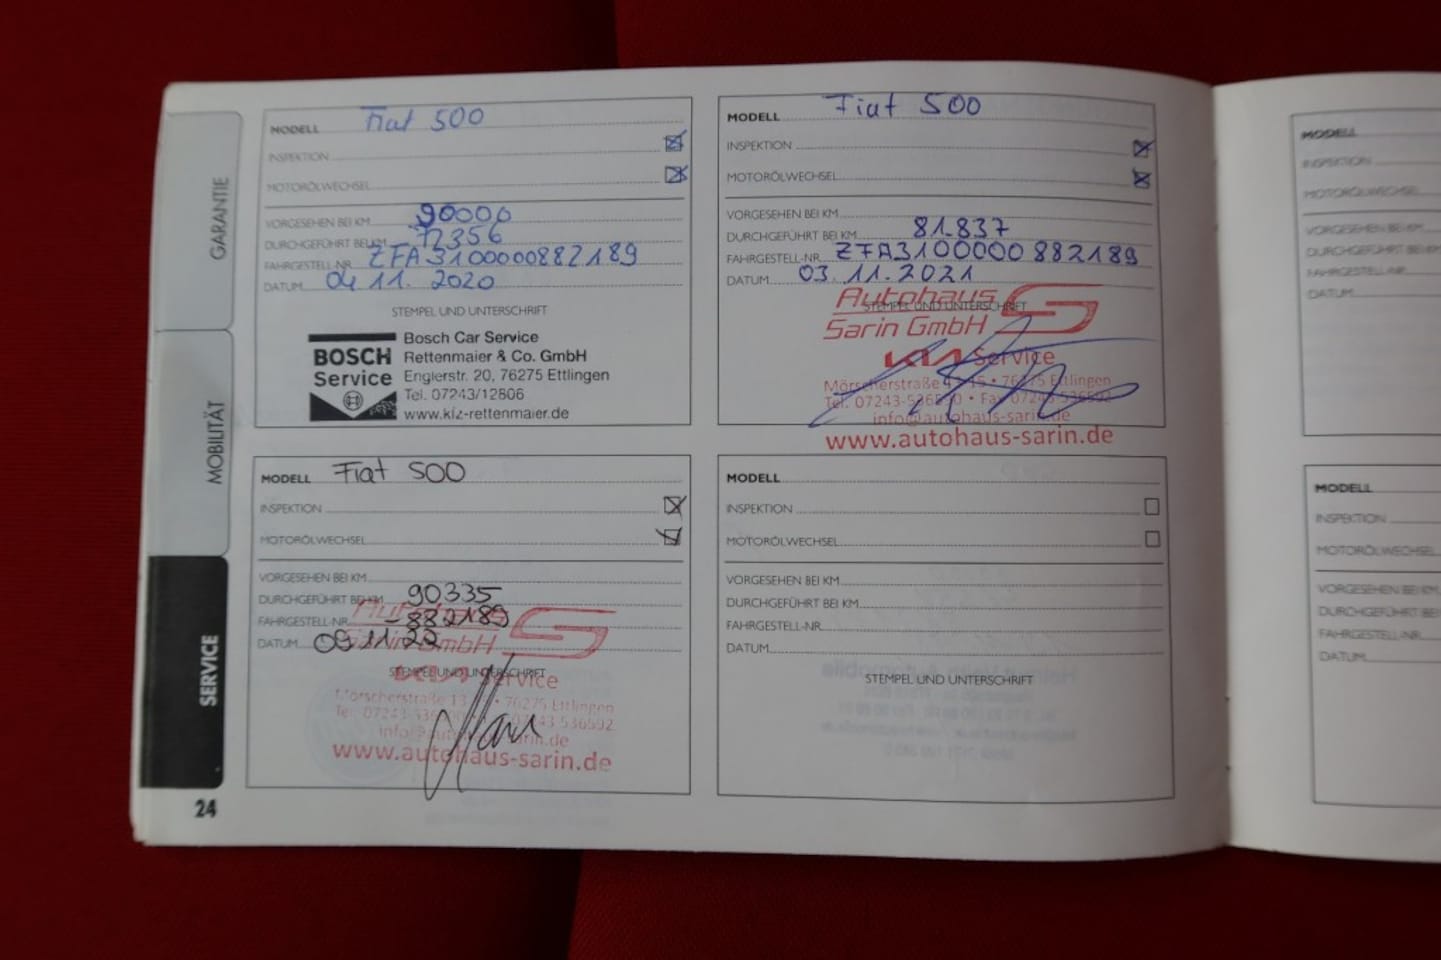 GARANTIE
MOBILITÄT
SERVICE
24
MODELL Fiat 500
INSPEKTION
MOTORÖLWECHSEL
VORGESEHEN BEI KM 90000
DURCHGEFÜHRT BEI KM 72356
FAHRGESTELL-NR. ZFA3100000882189
DATUM 04 11. 2020
STEMPEL UND UNTERSCHRIFT
BOSCH
Service
Bosch Car Service
Rettenmaier & Co. GmbH
Englerstr. 20, 76275 Ettlingen
Tel. 07243/12806
www.kfz-rettenmaier.de
MODELL Fiat 500
INSPEKTION
MOTORÖLWECHSEL
VORGESEHEN BEI KM
DURCHGEFÜHRT BEI KM 81.837
FAHRGESTELL-NR. ZFA3100000882189
DATUM 03.11.2021
STEMPEL UND UNTERSCHRIFT
Autohaus
Sarin GmbH
KIA Service
Mörscherstraße • 76275 Ettlingen
Tel. 07243-536590 • Fax 07243-536592
info@autohaus-sarin.de
www.autohaus-sarin.de
MODELL Fiat 500
INSPEKTION
MOTORÖLWECHSEL
VORGESEHEN BEI KM
DURCHGEFÜHRT BEI KM 90335
FAHRGESTELL-NR. -882189
DATUM 09 11 22
STEMPEL UND UNTERSCHRIFT
Autohaus
Sarin GmbH
KIA Service
Mörscherstraße • 76275 Ettlingen
Tel. 07243-536590 • 07243-536592
info@autohaus-sarin.de
www.autohaus-sarin.de
MODELL
INSPEKTION
MOTORÖLWECHSEL
VORGESEHEN BEI KM
DURCHGEFÜHRT BEI KM
FAHRGESTELL-NR.
DATUM
STEMPEL UND UNTERSCHRIFT
MODELL
INSPEKTION
MOTORÖLWECHSEL
VORGESEHEN BEI KM
DURCHGEFÜHRT BEI KM
FAHRGESTELL-NR.
DATUM
MODELL
INSPEKTION
MOTORÖLWECHSEL
VORGESEHEN BEI KM
DURCHGEFÜHRT BEI KM
FAHRGESTELL-NR.
DATUM